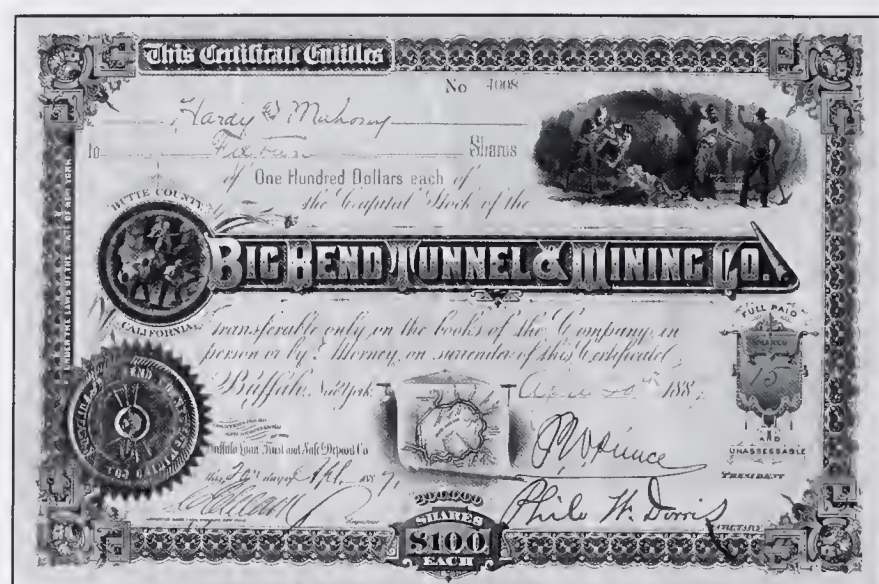 This Certificate Entitles
No 4008
Hardy & Mahoney
to Fifteen Shares
of One Hundred Dollars each of
the Capital Stock of the
BUTTE COUNTY
BIG BEND TUNNEL & MINING CO.
CALIFORNIA
UNDER THE LAWS OF THE STATE OF NEW YORK
Transferable only on the books of the Company, in
person or by Attorney, on surrender of this Certificate
Buffalo, New York April 20th 1887
FULL PAID
15
AND
UNASSESSABLE
Buffalo Loan, Trust and Safe Deposit Co
this 20th day of Apl. 1887,
PRESIDENT
Philo W. Dorris
200000
SHARES
$100
EACH